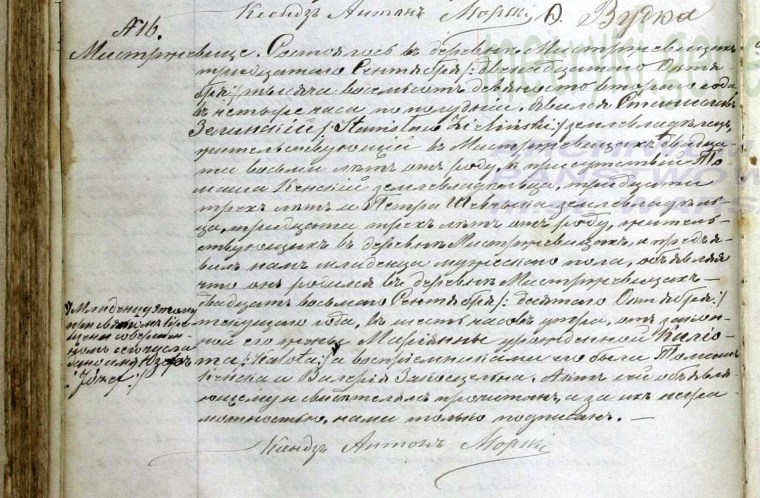 Ксендзъ Антонъ Морскі
№ 16.
Мистржевице. Состоялось въ деревнѣ Мистржевицахъ
тридцатаго Сентября /: двѣнадцатаго Октя-
бря :/ тысяча восемьсотъ девяносто втораго года,
въ четыре часа по полудни. Явился Станиславъ
Зелинскій /: Stanisław Zieliński :/ землевладѣлецъ,
жительствующій въ Мистржевицахъ двадца-
ти восьми лѣтъ отъ роду, въ присутствіи То-
маша Кенскій землевладѣльца, тридцати
трехъ лѣтъ и Петра Шевчыка землевладѣль-
ца, тридцати трехъ лѣтъ отъ роду, житель-
ствующихъ въ деревнѣ Мистржевицахъ, и предъя-
вилъ намъ младенца мужескаго пола, объявляя
что онъ родился въ деревнѣ Мистржевицахъ
двадцать восьмаго Сентября /: десятаго Октября :/
текущаго года, въ шесть часовъ утра, отъ закон-
ной его жены Маріянны урожденной
та /: Kalota :/ V а воспріемниками его были
Кенскій и Валерія Актъ сей объявля-
ющему и свидѣтелямъ прочитанъ, а за ихъ негра-
мотностью, нами только подписанъ. —
V Младенцу этому
при святомъ Кре-
щеніи совершён-
номъ сего числа
дано имя Юзефъ
/: Józef :/
Ксендзъ Антонъ Морскі